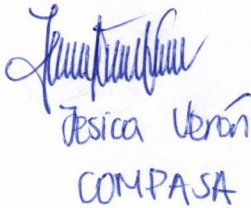 Jesica Verón
COMPASA